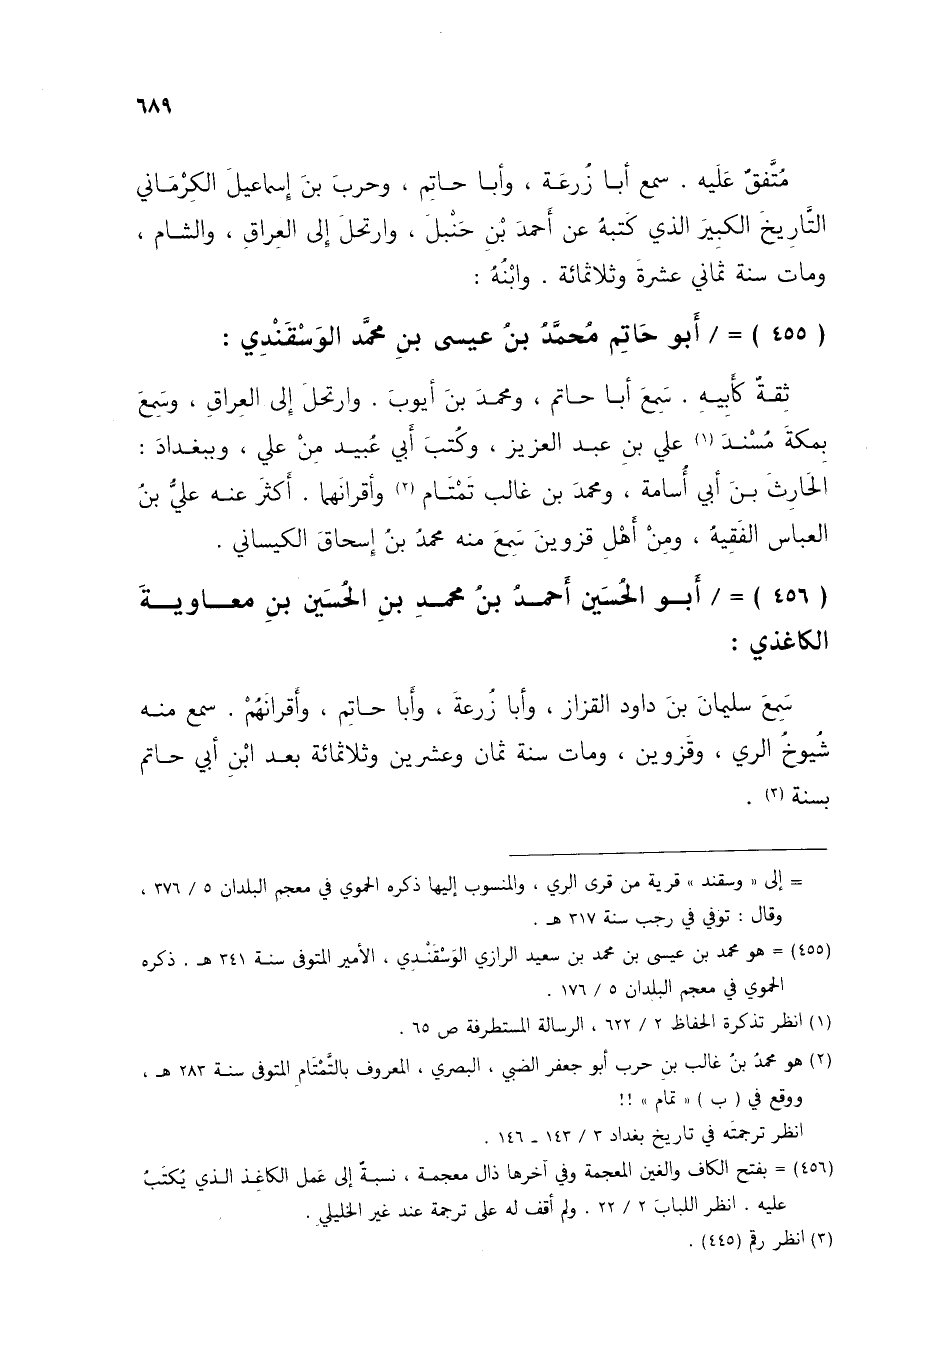 ٦٨٩
مُتَّفقٌ عَلَيه . سمع أبا زُرعَة ، وأبا حاتم ، وحربَ بنَ إسماعيلَ الكِرْمَاني
التَّاريخَ الكبيرَ الذي كَتبهُ عن أحمدَ بْنِ حَنْبلَ ، وارتحلَ إلى العراقِ ، والشام ،
ومات سنة ثماني عشرةَ وثلاثمائة . وابْنُهُ :
( ٤٥٥ ) = / أَبو حَاتِمٍ مُحمَّدُ بنُ عيسى بنِ محمَّد الوَسْقَنْدِي :
ثقةٌ كأَبيهِ . سَمِعَ أبا حاتم ، ومحمدَ بنَ أيوبَ . وارتحلَ إلى العراقِ ، وسَمِعَ
بمكةَ مُسْندَ (١) علي بن عبد العزيز ، وكُتبَ أَبي عُبيد مِنْ علي ، وببغدادَ :
الحَارثَ بنَ أبي أُسامة ، ومحمدَ بن غالب تَمْتَام (٢) وأقرانَهما . أكثَر عنه عليُّ بنُ
العباس الفَقيهُ ، ومِنْ أَهْلِ قزوينَ سَمِعَ منه محمدُ بنُ إسحاقَ الكيساني .
( ٤٥٦ ) = / أَبو الحُسَين أَحمدُ بنُ محمدِ بنِ الحُسَين بنِ معاويةَ
الكاغذي :
سَمِعَ سليمانَ بنَ داود القزاز ، وأَبا زُرعةَ ، وأَبا حاتم ، وأَقرانَهُمْ . سمع منه
شُيوخُ الري ، وقَزوين ، ومات سنة ثمان وعشرين وثلاثمائة بعد ابْنِ أبي حاتم
بسنة (٣) .
= إلى « وسقند » قرية من قرى الري ، والمنسوب إليها ذكره الحموي في معجم البلدان ٥ / ٣٧٦ ،
وقال : توفي في رجب سنة ٣١٧ هـ .
(٤٥٥) = هو محمد بن عيسى بن محمد بن سعيد الرازي الوَسْقَنْدي ، الأمير المتوفى سنة ٣٤١ هـ . ذكره
الحموي في معجم البلدان ٥ / ١٧٦ .
(١) انظر تذكرة الحفاظ ٢ / ٦٢٢ ، الرسالة المستطرفة ص ٦٥ .
(٢) هو محمدُ بنُ غالب بنِ حرب أبو جعفر الضبي ، البصري ، المعروف بالتَّمْتَام المتوفى سنة ٢٨٣ هـ ،
ووقع في ( ب ) « تمام » !!
انظر ترجمتَه في تاريخ بغداد ٣ / ١٤٣ ـ ١٤٦ .
(٤٥٦) = بفتح الكاف والغين المعجمة وفي آخرها ذال معجمة ، نسبةٌ إلى عَمل الكاغذ الذي يُكتَبُ
عليه . انظر اللبابَ ٢ / ٢٢ . ولم أقف له على ترجمة عند غير الخليلي .
(٣) انظر رقم (٤٤٥) .